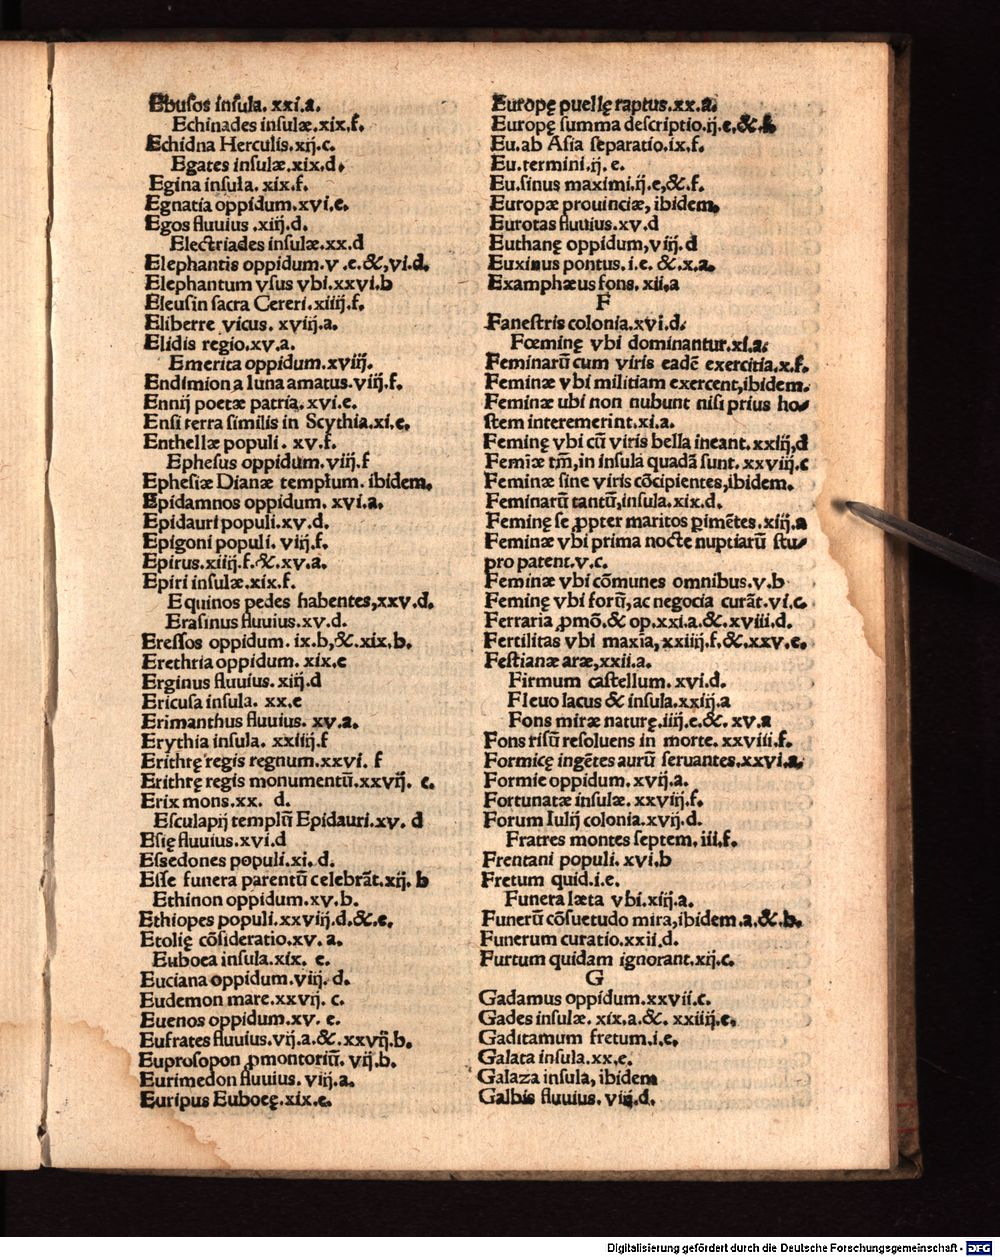 Ebusos insula. xxi.a.
Echinades insulæ.xix.f.
Echidna Herculis.xij.c.
Egates insulæ.xix.d.
Egina insula. xix.f.
Egnatia oppidum.xvi.e.
Egos fluuius .xiij.d.
Electriades insulæ.xx.d
Elephantis oppidum.v .e.&,vi.d.
Elephantum vsus vbi.xxvi.b
Eleusin sacra Cereri.xiiij.f.
Eliberre vicus. xviij.a.
Elidis regio.xv.a.
Emerita oppidum.xviij.
Endimion a luna amatus.viij.f.
Ennij poetæ patria. xvi.e.
Ensi terra similis in Scythia.xi.e.
Enthellæ populi. xv.f.
Ephesus oppidum.viij.f
Ephesiæ Dianæ templum. ibidem.
Epidamnos oppidum. xvi.a.
Epidauri populi.xv.d.
Epigoni populi. viij.f.
Epirus.xiiij.f.&.xv.a.
Epiri insulæ.xix.f.
Equinos pedes habentes,xxv.d.
Erasinus fluuius.xv.d.
Eressos oppidum. ix.b,&.xix.b.
Erethria oppidum. xix.e
Erginus fluuius. xiij.d
Ericusa insula. xx.e
Erimanthus fluuius. xv.a.
Erythia insula. xxiiij.f
Erithrę regis regnum.xxvi. f
Erithrę regis monumentū.xxvij. c.
Erix mons.xx. d.
Esculapij templū Epidauri.xv. d
Esię fluuius.xvi.d
Essedones populi.xi. d.
Esse funera parentū celebrāt.xij. b
Ethinon oppidum.xv.b.
Ethiopes populi.xxviij.d.&.e.
Etolię cōsideratio.xv. a.
Euboea insula.xix. e.
Euciana oppidum.viij. d.
Eudemon mare.xxvij. c.
Euenos oppidum.xv. e.
Eufrates fluuius.vij.a.&.xxvij.b.
Euprosopon ꝓmontoriū. vij.b.
Eurimedon fluuius. viij.a.
Euripus Euboeę.xix.e.
Europę puellę raptus.xx.a.
Europę summa descriptio.ij.e.&.
Eu.ab Asia separatio.ix.f.
Eu.termini.ij. e.
Eu.sinus maximi.ij.e,&.f.
Europæ prouinciæ, ibidem.
Eurotas fluuius.xv.d
Euthanę oppidum,viij.d
Euxinus pontus. i.e. &.x.a.
Examphæus fons. xii.a
F
Fanestris colonia.xvi.d.
Fœminę vbi dominantur.xi.a.
Feminarū cum viris eadē exercitia.x.f.
Feminæ vbi militiam exercent,ibidem.
Feminæ ubi non nubunt nisi prius ho-
stem interemerint.xi.a.
Feminę vbi cū viris bella ineant.xxiij,d
Femīæ tm̄,in insula quadā sunt. xxviij.c
Feminæ sine viris cōcipientes,ibidem.
Feminarū tantū,insula.xix.d.
Feminę se ꝓpter maritos ꝑimētes.xiij.a
Feminæ vbi prima nocte nuptiarū stu-
pro patent.v.c.
Feminæ vbi cōmunes omnibus.v.b
Feminę vbi forū,ac negocia curāt.vi.c.
Ferraria ꝓmō.& op.xxi.a.&.xviii.d.
Fertilitas vbi maxīa,xxiiij.f.&.xxv.e.
Festianæ aræ,xxii.a.
Firmum castellum. xvi.d.
Fleuo lacus & insula.xxiij.a
Fons miræ naturę.iiij.e.&. xv.a
Fons risū resoluens in morte. xxviii.f.
Formicę ingētes aurū seruantes.xxvi.a.
Formie oppidum. xvij.a.
Fortunatæ insulæ. xxviij.f.
Forum Iulij colonia.xvij.d.
Fratres montes septem. iii.f.
Frentani populi. xvi.b
Fretum quid.i.e.
Funera læta vbi.xiij.a.
Funerū cōsuetudo mira,ibidem.a.&.b.
Funerum curatio.xxii.d.
Furtum quidam ignorant.xij.c.
G
Gadamus oppidum.xxvii.c.
Gades insulæ. xix.a.&. xxiiij.e.
Gaditamum fretum.i.e.
Galata insula.xx.e.
Galaza insula, ibidem
Galbis fluuius. viij.d.
Digitalisierung gefördert durch die Deutsche Forschungsgemeinschaft - DFG